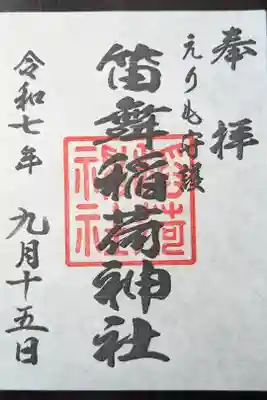 奉拝
えりも守護
笛舞稲荷神社
稲荷神社
令和七年 九月十五日